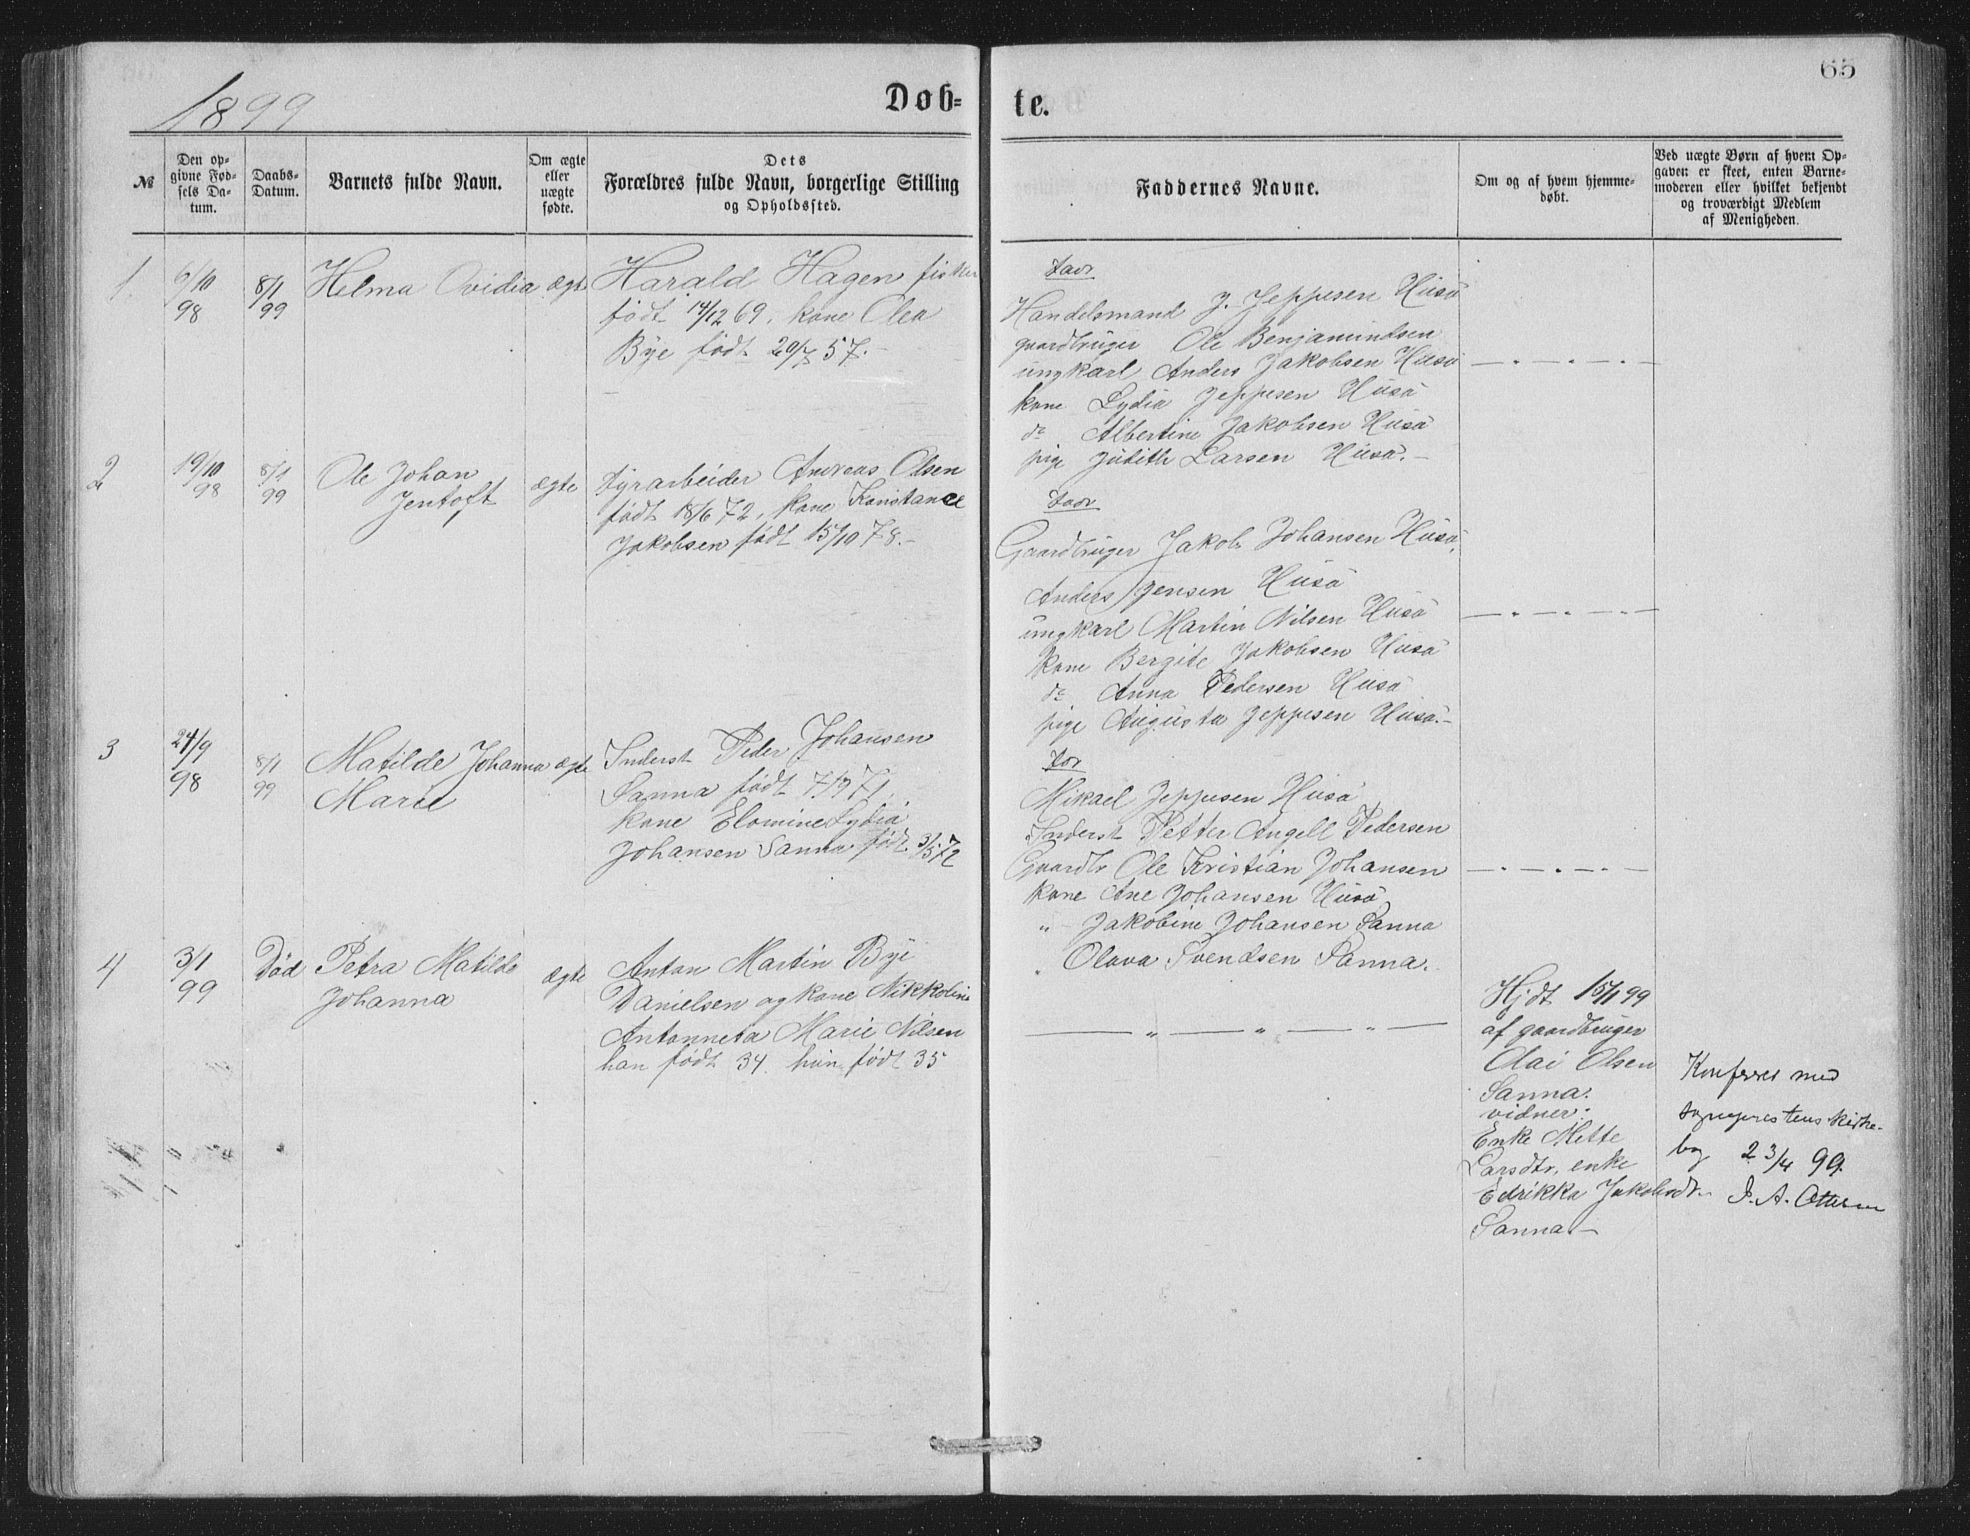 65
1899
Døb-
te.
№
Den op-
givne Fød-
sels Da-
tum.
Daabs-
Datum.
Barnets fulde Navn.
Om ægte
eller
uægte
fødte.
Dets
Forældres fulde Navn, borgerlige Stilling
og Opholdssted.
Faddernes Navne.
Om og af hvem hjemme-
døbt.
Ved uægte Børn af hvem Op-
gaven er skeet, enten Barne-
moderen eller hvilket bekjendt
og troværdigt Medlem
af Menigheden.
1.
6/10
98
8/1
99
Helma Ovidia
ægte
Harald Hagen fisker
født 14/12 69, kone Olea
Bye født 29/7 57.-
Handelsmand J. Jeppesen Husö
gaardbruger Ole Benjamindsen
ungkarl Anders Jakobsen Husö
kone Lydia Jeppesen Husö
do Albertine Jakobsen Husö
pige Judith Larsen Husö.-
2
19/10
98
8/1
99
Ole Johan
Jentoft
ægte
Fyrarbeider Andreas Olsen
født 18/6 72, kone Konstance
Jakobsen født 15/10 78.-
Gaardbruger Jakob Johansen Husö,
Anders Jensen Husö
ungkarl Martin Nilsen Husö
kone Bergite Jakobsen Husö
do Anna Pedersen Husö
pige Augusta Jeppesen Husö.-
3
24/9
98
8/1
99
Matilde Johanna
Marie
ægte
Inderst Peder Johansen
Sanna født 7/9 71.
kone Elomine Lydia
Johansen Sanna født 3/5 72
Mikael Jeppesen Husö
Inderst Petter Angell Pedersen
Gaardbr Ole Kristian Johansen
kone Ane Johansen Husö
" Jakobine Johansen Sanna
" Olava Svendsen Sanna.
4
3/1
99
Død
Petra Matilde
Johanna
ægte
Anton Martin Bye
Danielsen og kone Nikkoline
Antonneta Marie Nilsen
han født 34. hun født 35
Hjdt 15/1 99
af gaardbruger
Olai Olsen
Sanna.
vidner:
Enke Mette
Larsdtr, enke
Edrikka Jakobsdt.
Sanna.-
Konferert med
sogneprestens kirke-
bog 23/4 99.